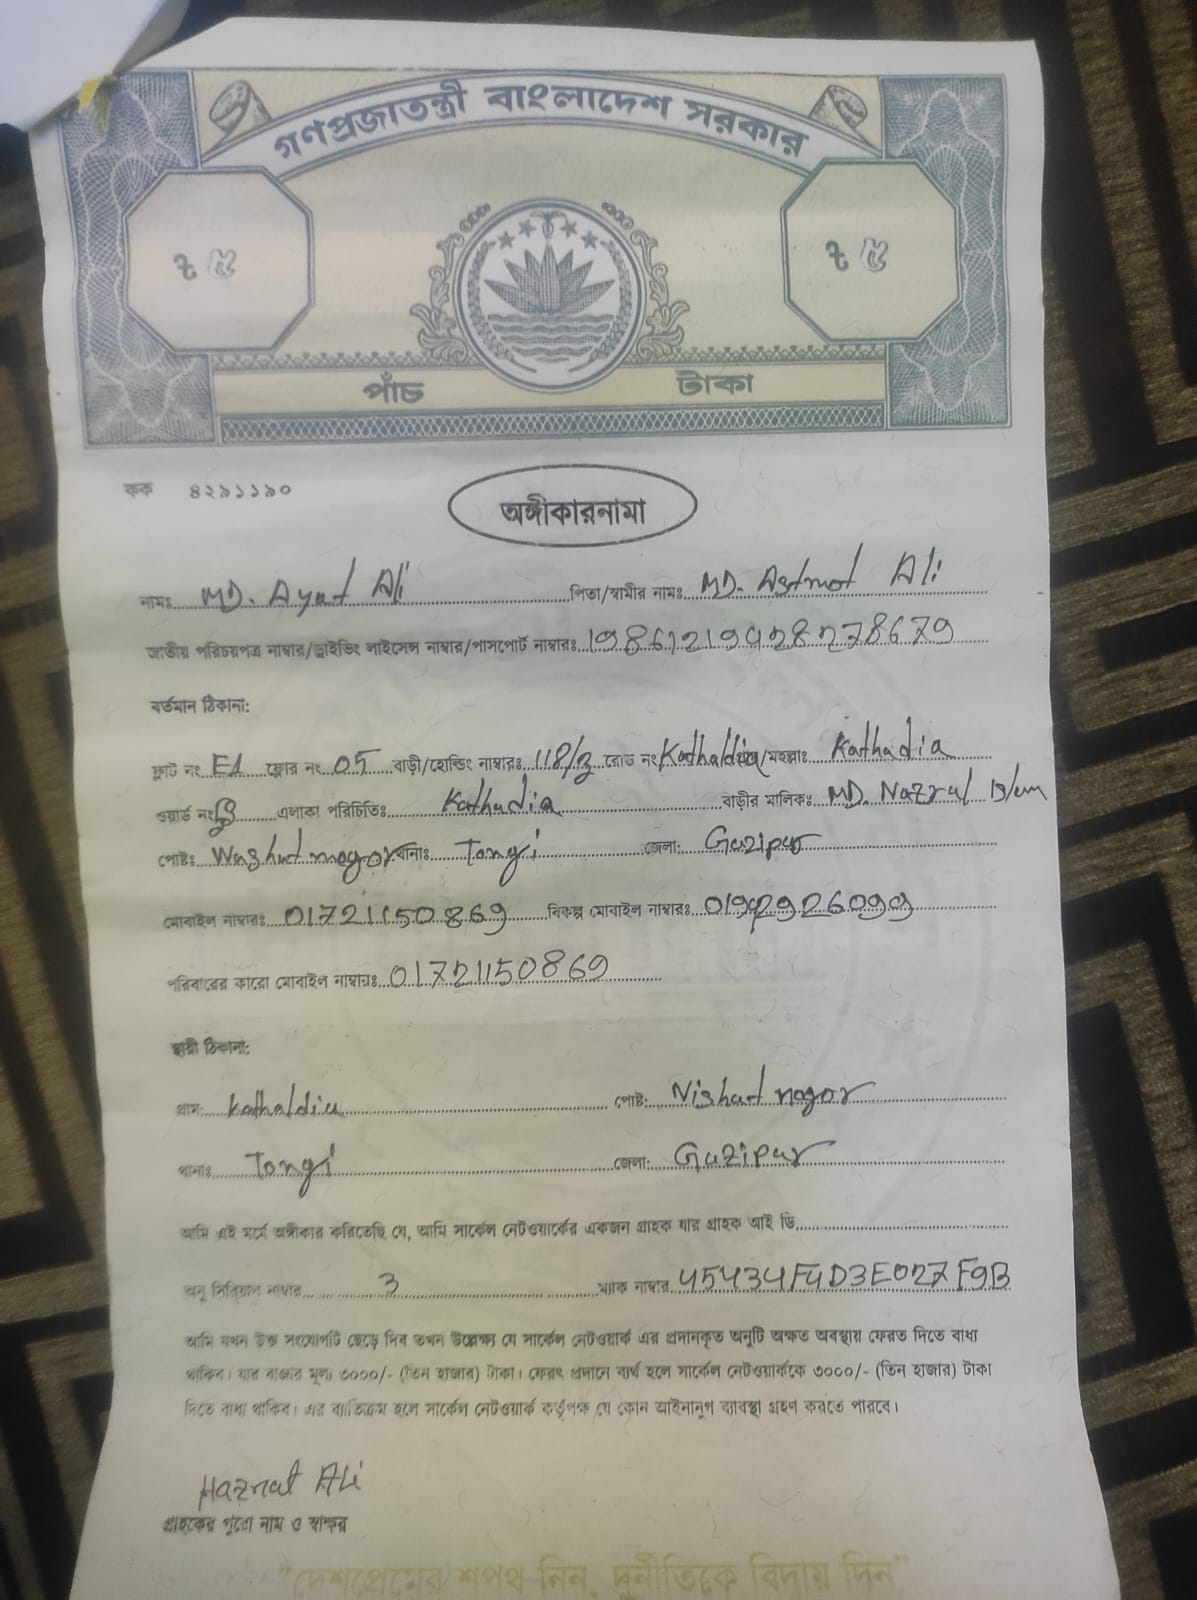 গণপ্রজাতন্ত্রী বাংলাদেশ সরকার
৳ ৫ ৳ ৫
পাঁচ টাকা
কক ৪২৯১১৯০
অঙ্গীকারনামা
নামঃ MD. Ayat Ali পিতা/স্বামীর নামঃ MD. Ali
জাতীয় পরিচয়পত্র নাম্বার/ড্রাইভিং লাইসেন্স নাম্বার/পাসপোর্ট নাম্বারঃ
বর্তমান ঠিকানা:
ফ্লাট নং E1 ফ্লোর নং 05 বাড়ী/হোল্ডিং নাম্বারঃ রোড নং Kathaldia/মহল্লাঃ Kathadia
ওয়ার্ড নং এলাকা পরিচিতিঃ Kathadia বাড়ীর মালিকঃ MD. Nazrul Islam
পোষ্টঃ থানাঃ Tongi জেলা: Gazipur
মোবাইল নাম্বারঃ 01721150869 বিকল্প মোবাইল নাম্বারঃ
পরিবারের কারো মোবাইল নাম্বারঃ 01721150869
স্থায়ী ঠিকানা:
গ্রাম: Kathaldia পোষ্ট: Nishat nagor
থানাঃ Tongi জেলা: Gazipur
আমি এই মর্মে অঙ্গীকার করিতেছি যে, আমি সার্কেল নেটওয়ার্কের একজন গ্রাহক যার গ্রাহক আই ডি
অনু সিরিয়াল নাম্বার 3 ম্যাক নাম্বার 45434F4D3E027F9B
আমি যখন উক্ত সংযোগটি ছেড়ে দিব তখন উল্লেক্ষ্য যে সার্কেল নেটওয়ার্ক এর প্রদানকৃত অনুটি অক্ষত অবস্থায় ফেরত দিতে বাধ্য
থাকিব। যার বাজার মূল্য ৩০০০/- (তিন হাজার) টাকা। ফেরৎ প্রদানে ব্যর্থ হলে সার্কেল নেটওয়ার্ককে ৩০০০/- (তিন হাজার) টাকা
দিতে বাধ্য থাকিব। এর ব্যতিক্রম হলে সার্কেল নেটওয়ার্ক কর্তৃপক্ষ যে কোন আইনানুগ ব্যাবস্থা গ্রহণ করতে পারবে।
Haznat Ali
গ্রাহকের পুরো নাম ও স্বাক্ষর
"দেশপ্রেমের শপথ নিন, দুর্নীতিকে বিদায় দিন"